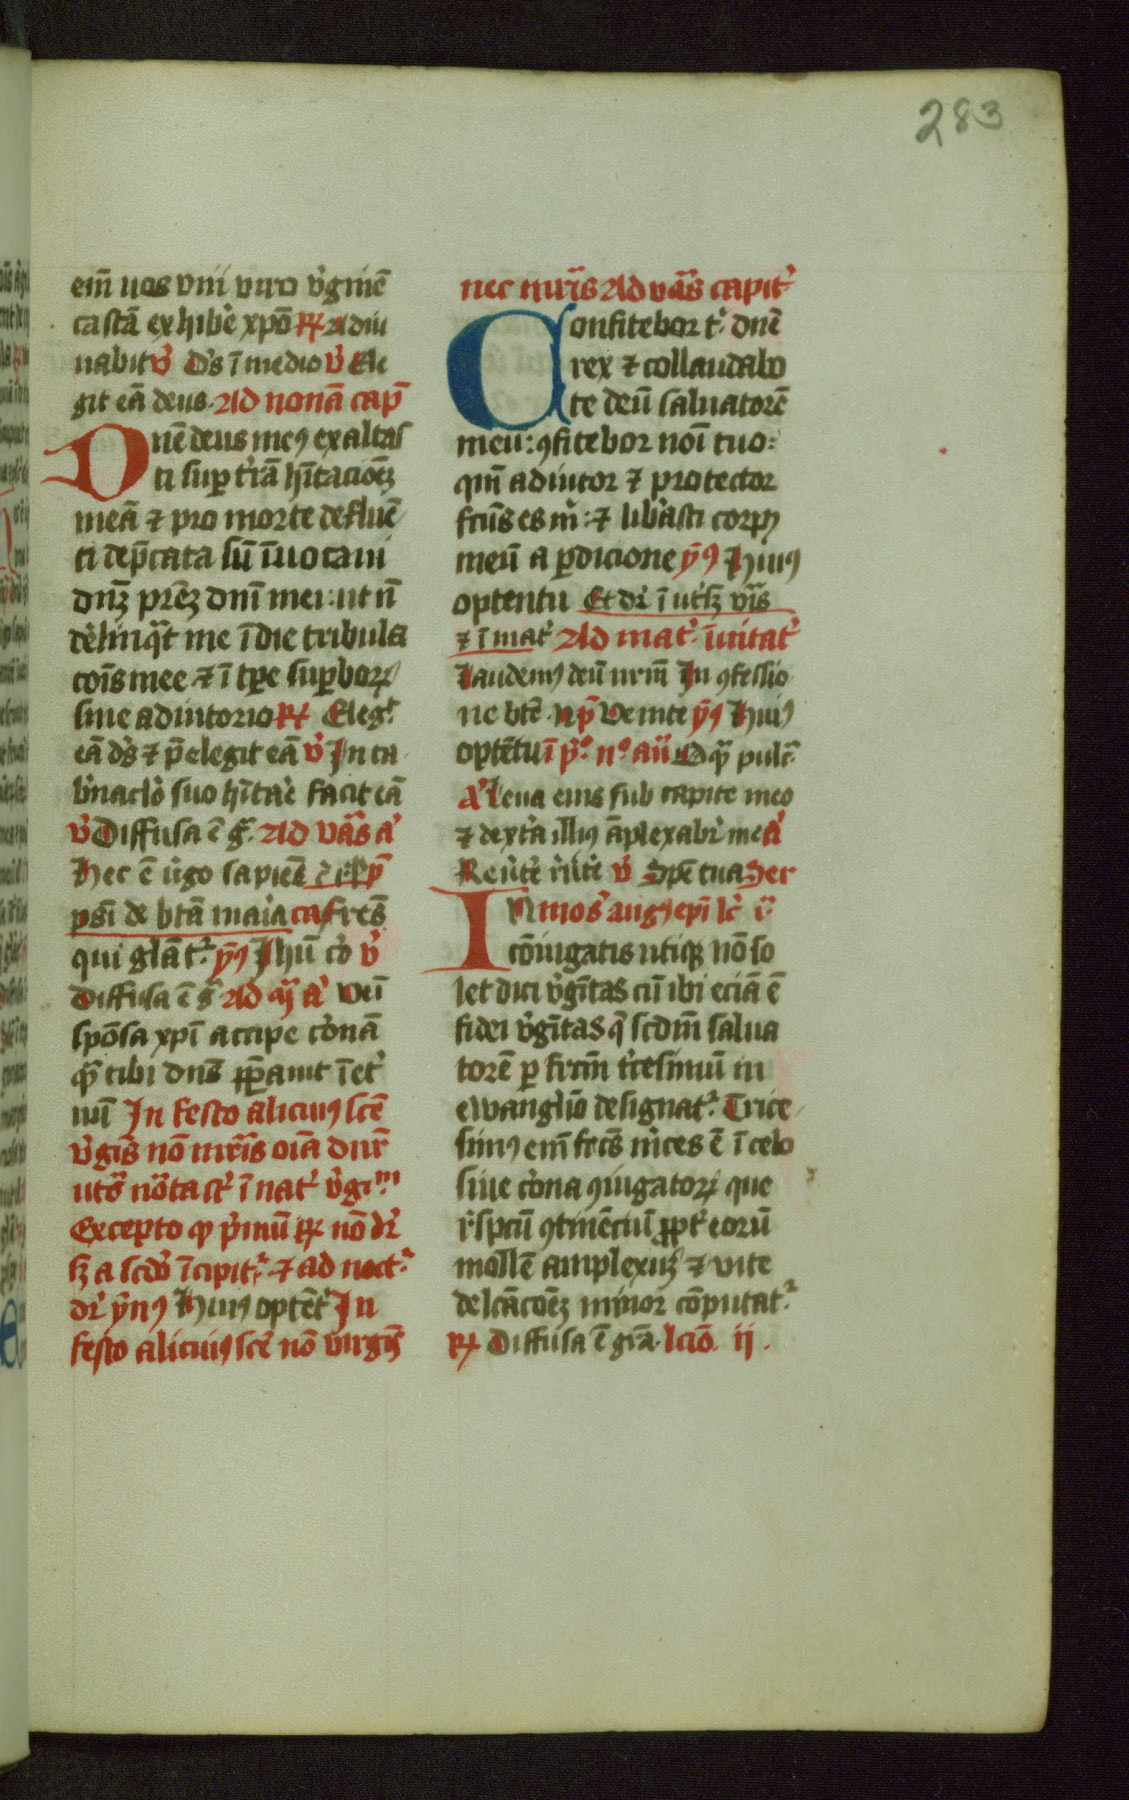 283
em̄ uos vni viro v̓ginē
castā exhibē xp̄o R̷ Adiu
uabit v̓ Ds̄ ī medio v̓ Ele
git eā deus. Ad nonā cap̄
Dn̄e deus me⁹ exaltas
ti suꝑ tr̄ā hītacioēꝫ
meā ⁊ pro morte defluē
ti dep̄cata sū īuocaui
dn̄ꝫ prēꝫ dn̄i mei: ut n̄
delinq̄t me ī die tribula
coīs mee ⁊ ī tꝑe suꝑboꝝ
sine adiutorio R̷ Eleg̓ͭ
eā ds̄ ⁊ p̄elegit eā v̓ In ta
b̓naclo̓ suo hītae̓ facit eā
v̓ Diffusa ē g̓. Ad vās a̓
Hec ē v̓go sapiēs
ps̄i de btā maīa ca frēs
qui glāt᷑ ym̄⁹ Ihū co̓ v̓
Diffusa ē g̓ Ad a̓ Veī
spōsa xp̄i accipe co̓nā
qꝫ tibi dn̄s p̄pauit ī et̓
nū In festo alicui⁹ sce̅
v̓gis̄ nō mr̄is oīa dnr̄
utō nōtast̓ ī nat̓ v̓giͫ
Excepto ꝙ p̓mū R̷ nō dr̄
sꝫ a scdo̓ īcipit᷑ ⁊ ad noct᷑
dr̄ ym̄n⁹ Hui⁹ optēt̓ In
festo alicui⁹ sce̅ nō virgīs
nec mr̄is Ad vās capit᷑
Confitebor t̓ dn̄e
rex ⁊ collaudabo
te deū saluatorē
meū: ꝯfitebor noī tuo:
qm̄ adiutor ⁊ protector
fc̄us es m̓: ⁊ lib̓asti corp⁹
meū a ꝑdicione ym̄⁹ Hui⁹
optentu Et dr̄ ī ut̓sꝫ vīs
⁊ ī mat̓ Ad mat̓ īuitat᷑
Laudem⁹ deū nr̄m̄ In ꝯfessio
ne btē. np̄ Venite ym̄⁹ Hui⁹
optētu ī p̓º nº an̄ O qꝫ pulc̓
a̓ Leua eius sub capite meo
⁊ dext̓a illi⁹ āplexabr̓ me a̓
Reu̓te̓ ru̓te̓ v̓ Spē tua Ser
IN mo s̓ aug⁹ epī lc̓ i᷑
cōiugatis utiqꝫ nō so
let dici v̓gītas cū ibi eciā ē
fidei v̓gītas q̄ scdm̄ salua
torē ꝑ frcm̄ tr̓esimū in
ewanglio̅ designat᷑. Trice
sim⁹ em̄ frcs̄ m̓ces ē ī celo
siue co̓na ꝯiugatoꝝ que
r̓spcū ꝯtinēciū ꝓpt̓ eorū
mollē amplexū ⁊ vite
delcācoēꝫ minor cōputat᷑
R̷ Diffusa ē gr̄a. lcīo ii.